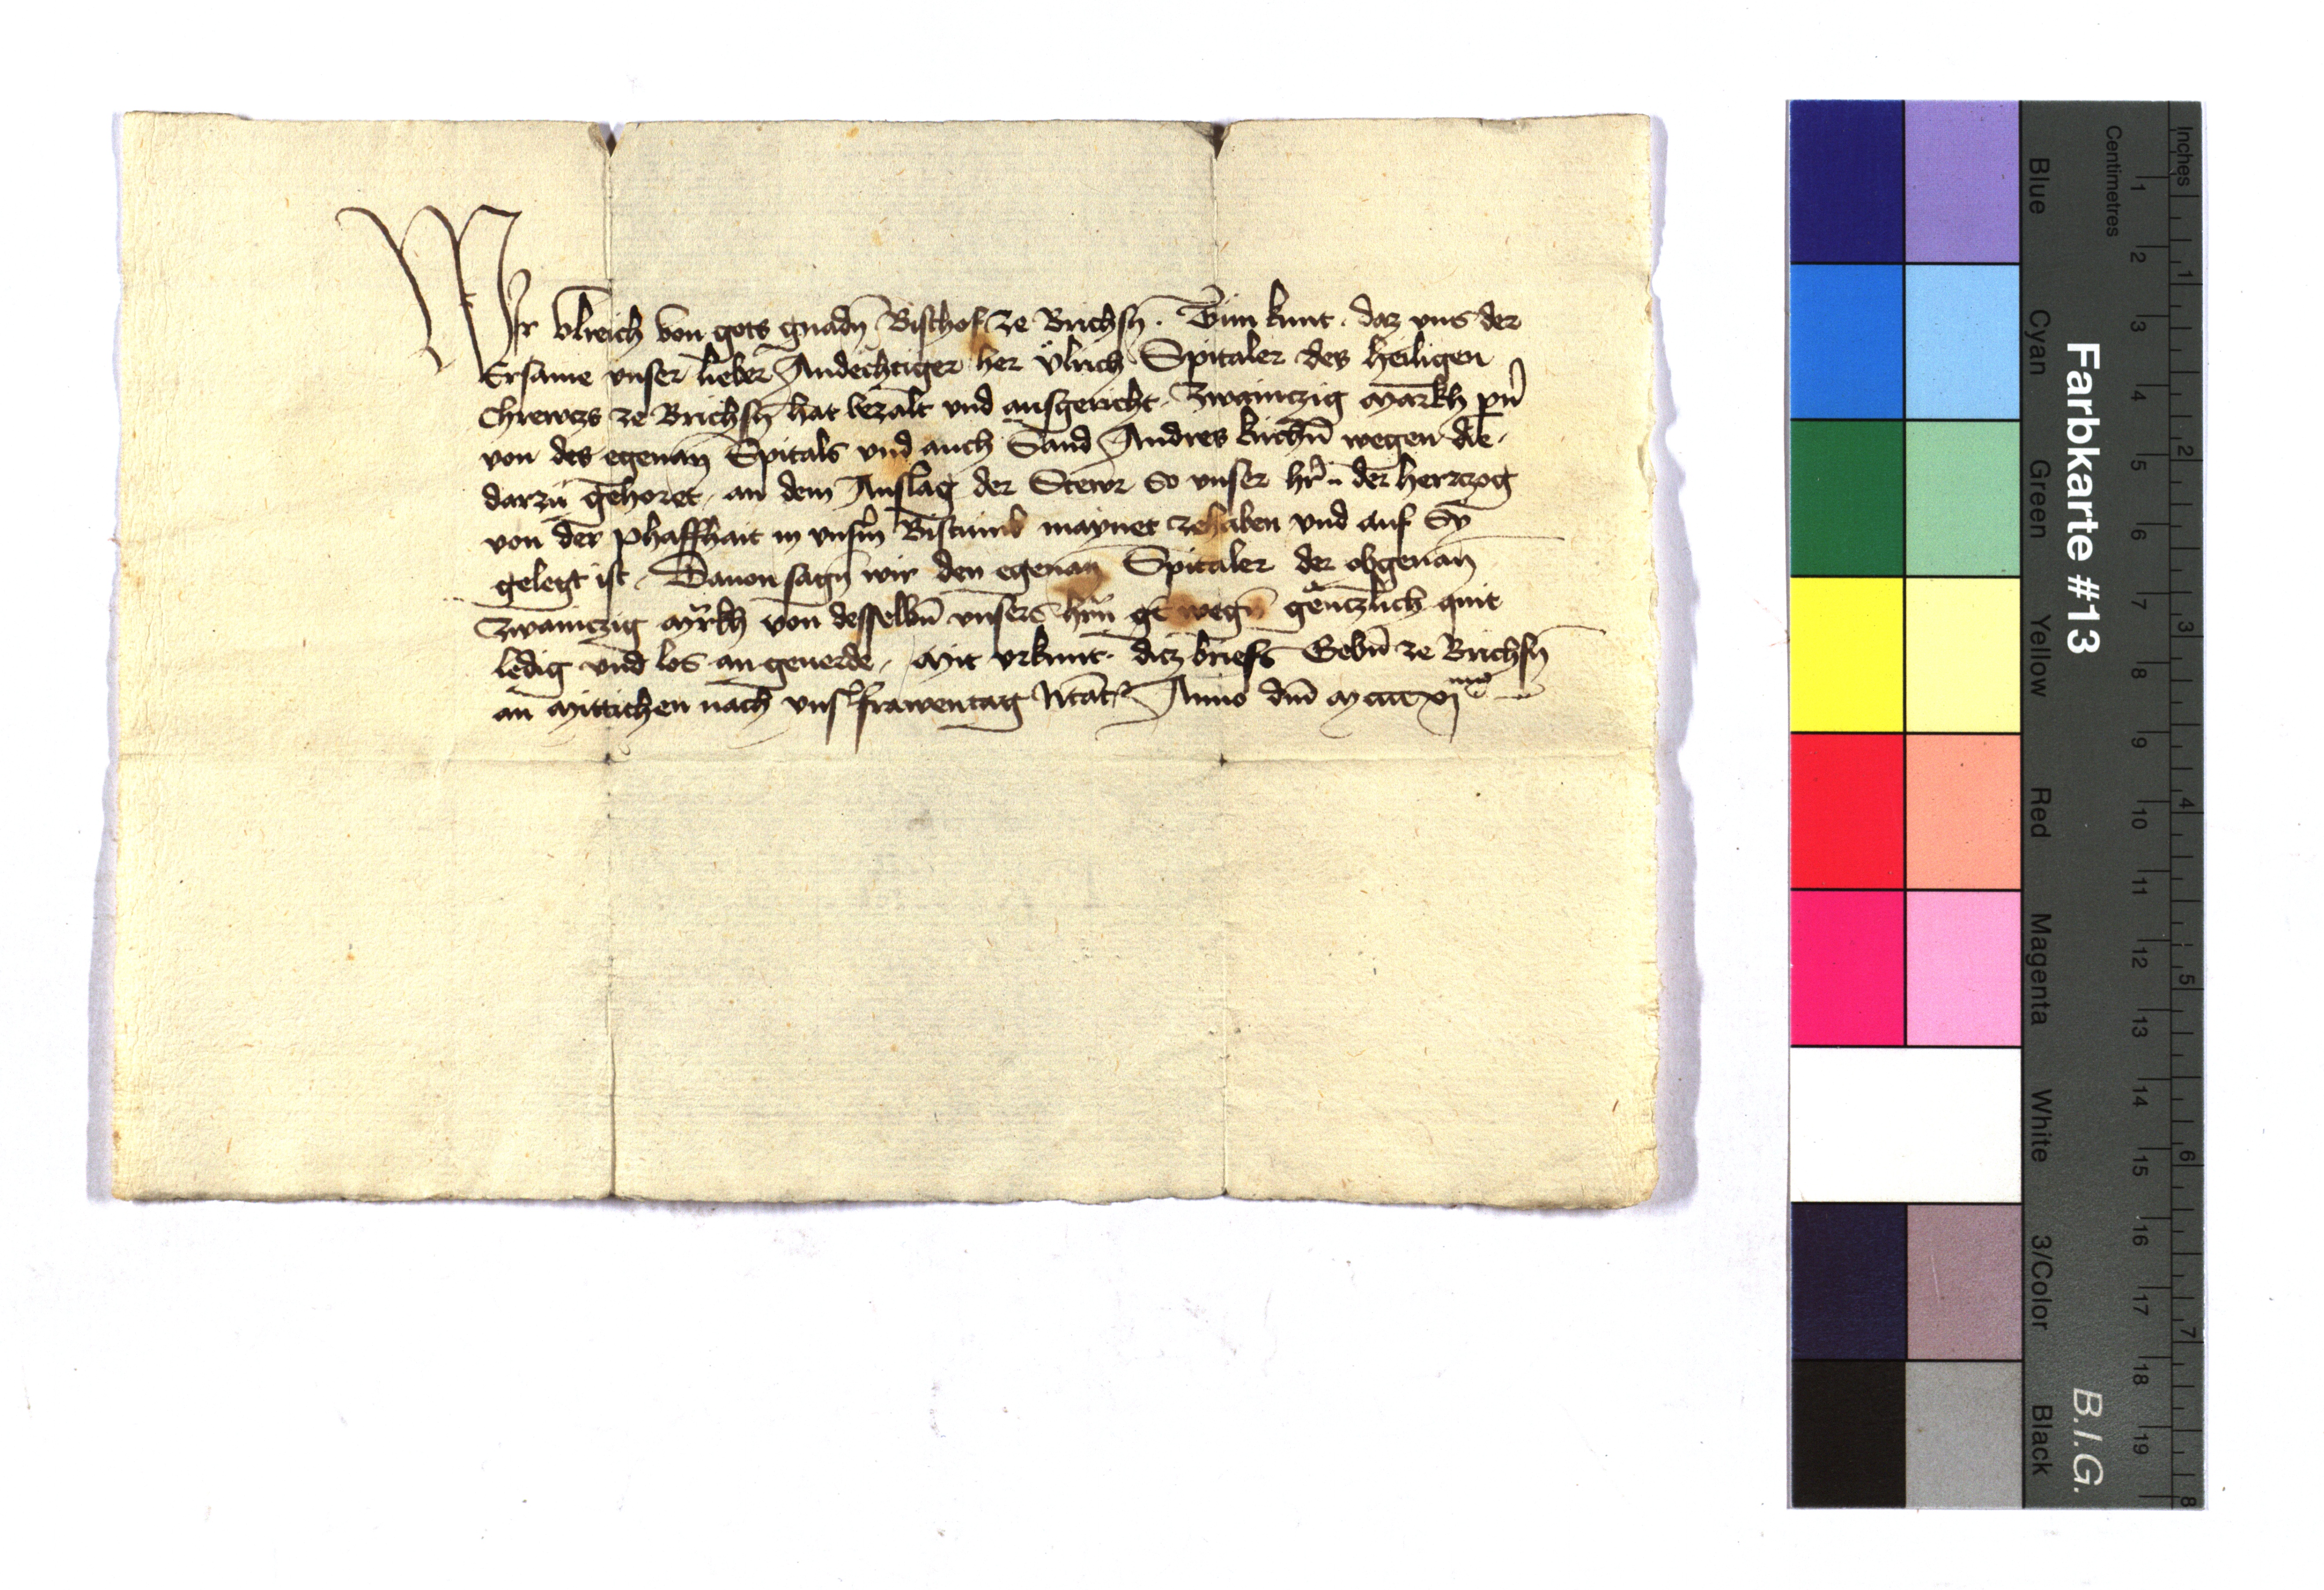 Wir vlreich von gots gnadn̄ Bischof ze Brichsn̄ . Tun kunt . daz vns der
Ersame vnser lieber Andechtiger her Vlrich Spitaler des heiligen
Chrewczs ze Brichsn̄ hat bezalt vnd ausgericht . Zwainczig Markh
von des egenan̄ Spitals vnd auch Sand Andres kirchn̄ wegen die
darzu gehoret , an dem Anslag der Stewr so vnser hr̄ der herczog
von der phaffhait in vnsm̄ Bistumb maynet zehaben vnd auf Sy
gelegt ist . Dauon sagn̄ wir den egenan̄ Spitaler der obgenan̄
Zwainczig M̄rkh von desselbn̄ vnsers hrn̄ wegn̄ genczlich quit
ledig vnd los an geuerde , Mit vrkunt dicz briefs Gebn̄ ze Brichsn̄
an Mittichen nach vnsr̄ frawentag Anno dm̄
Farbkarte #13
B.I.G.
Inches
Centimetres
1 2 3 4 5 6 7 8 9 10 11 12 13 14 15 16 17 18 19
1 2 3 4 5 6 7 8
Blue Cyan Green Yellow Red Magenta White 3/Color Black